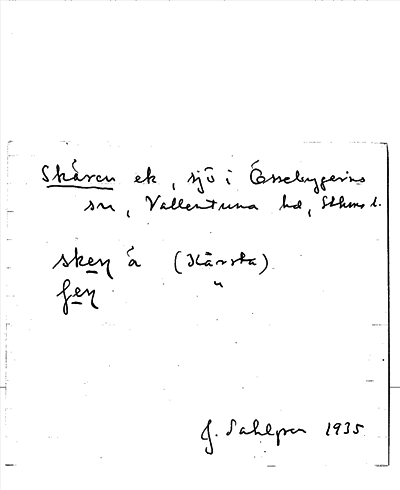 Skären ek, sjö i Össebygarns
sn, Vallentuna hd, Sthms l.
sken å (Kårsta)
fen "
J. Sahlgren 1935